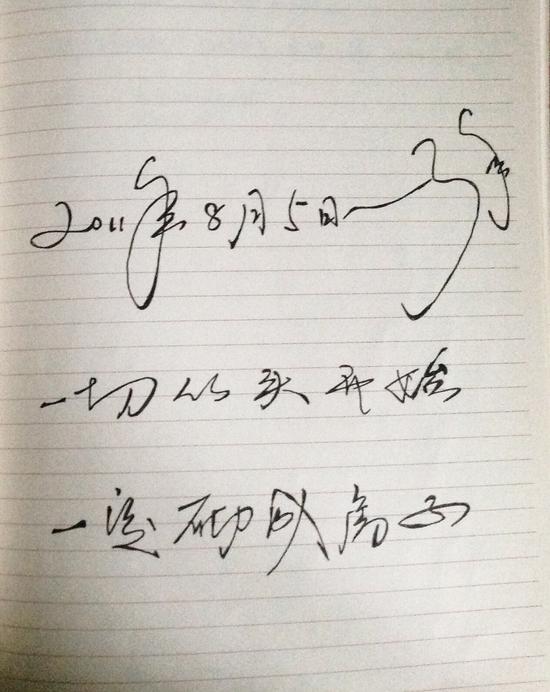 2011年8月5日
一切从头开始
一定成高